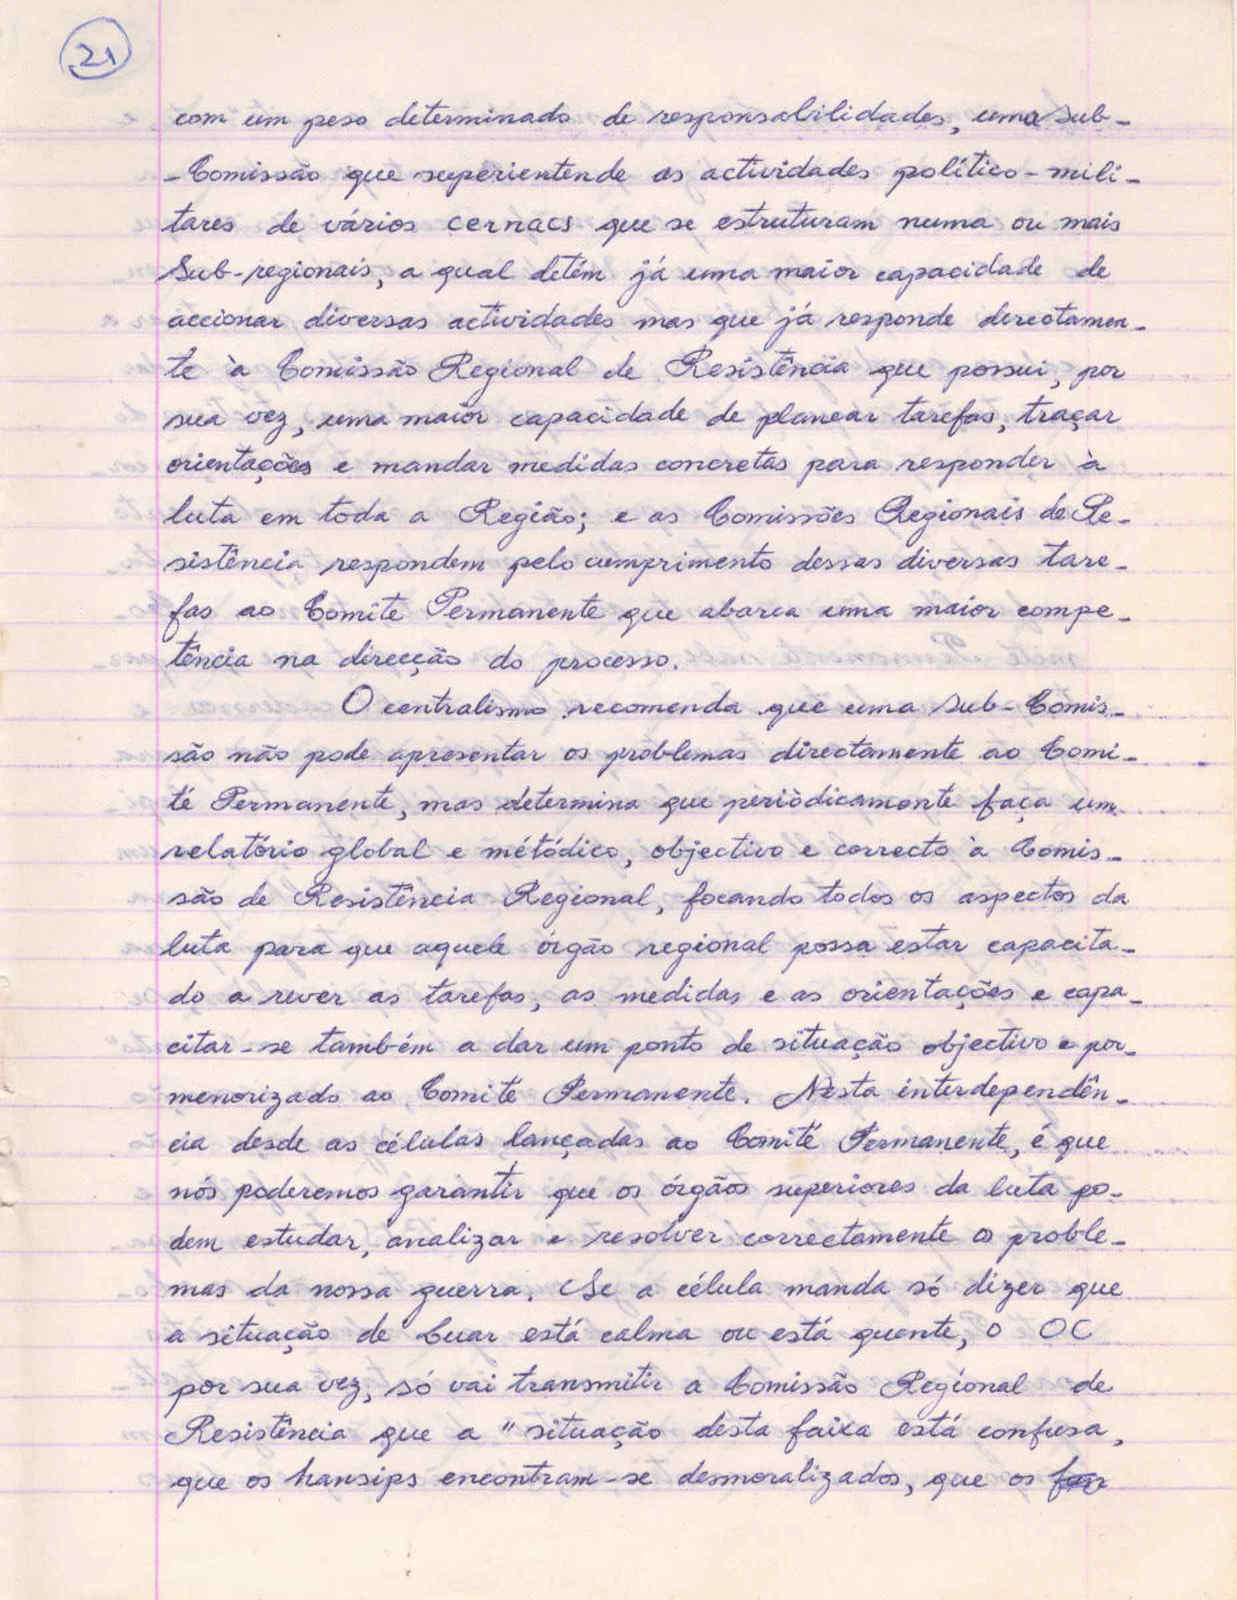 21
com um peso determinado de responsabilidades, uma Sub-
-Comissão que superientende as actividades político-mili-
tares de vários cernacs que se estruturam numa ou mais
Sub-regionais, a qual detém já uma maior capacidade de
accionar diversas actividades mas que já responde directamen-
te à Comissão Regional de Resistência que possui, por
sua vez, uma maior capacidade de planear tarefas, traçar
orientações e mandar medidas concretas para responder à
luta em toda a Região; e as Comissões Regionais de Re-
sistência respondem pelo cumprimento dessas diversas tare-
fas ao Comité Permanente que abarca uma maior compe-
tência na direcção do processo.
O centralismo recomenda que uma Sub-Comis-
são não pode apresentar os problemas directamente ao Comi-
té Permanente, mas determina que periòdicamente faça um
relatório global e métódico, objectivo e correcto à Comis-
são de Resistência Regional, focando todos os aspectos da
luta para que aquele órgão regional possa estar capacita-
do a rever as tarefas, as medidas e as orientações e capa-
citar-se também a dar um ponto de situação objectivo e por-
menorizado ao Comité Permanente. Nesta interdependên-
cia desde as células lançadas ao Comité Permanente, é que
nós poderemos garantir que os órgãos superiores da luta po-
dem estudar, analizar e resolver correctamente os proble-
mas da nossa guerra. Se a célula manda só dizer que
a situação de Luar está calma ou está quente, o OC
por sua vez, só vai transmitir a Comissão Regional de
Resistência que a "situação desta faixa está confusa,
que os hansips encontram-se desmoralizados, que os